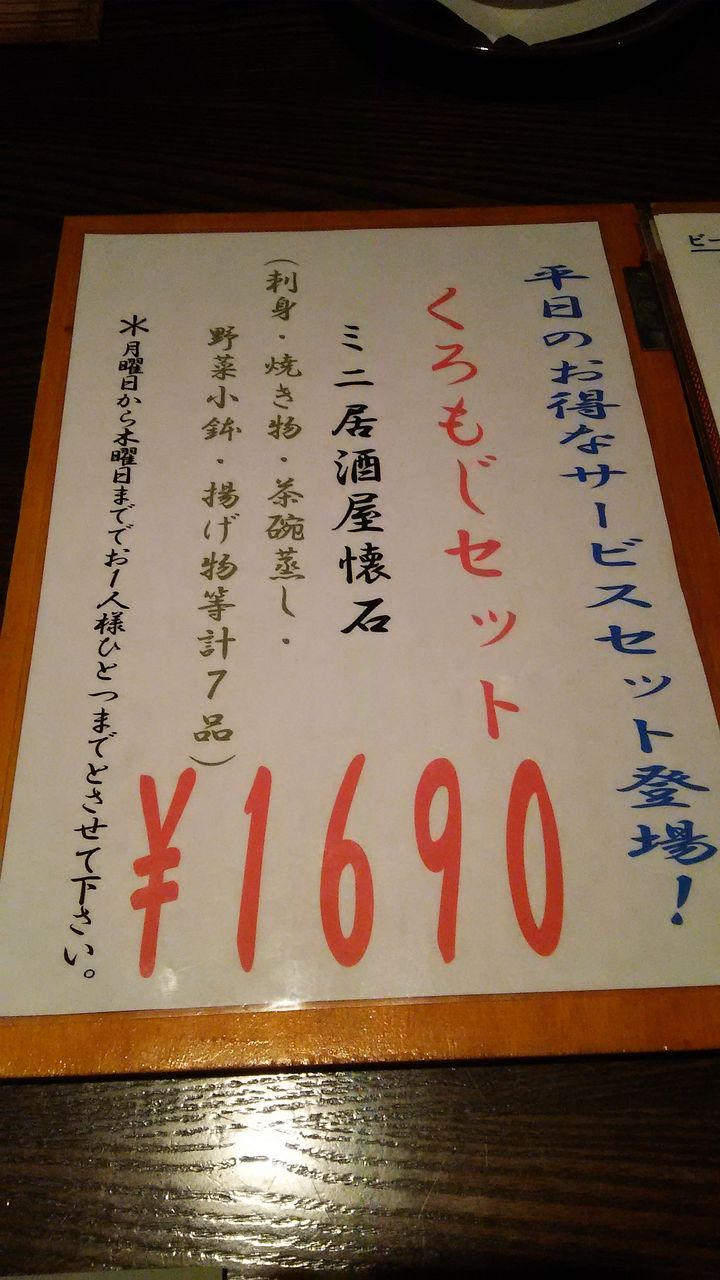 平日のお得なサービスセット登場！
くろもじセット
ミニ居酒屋懐石
（刺身・焼き物・茶碗蒸し・
野菜小鉢・揚げ物等計7品）
¥1690
＊月曜日から木曜日まででお1人様ひとつまでとさせて下さい。
ビー